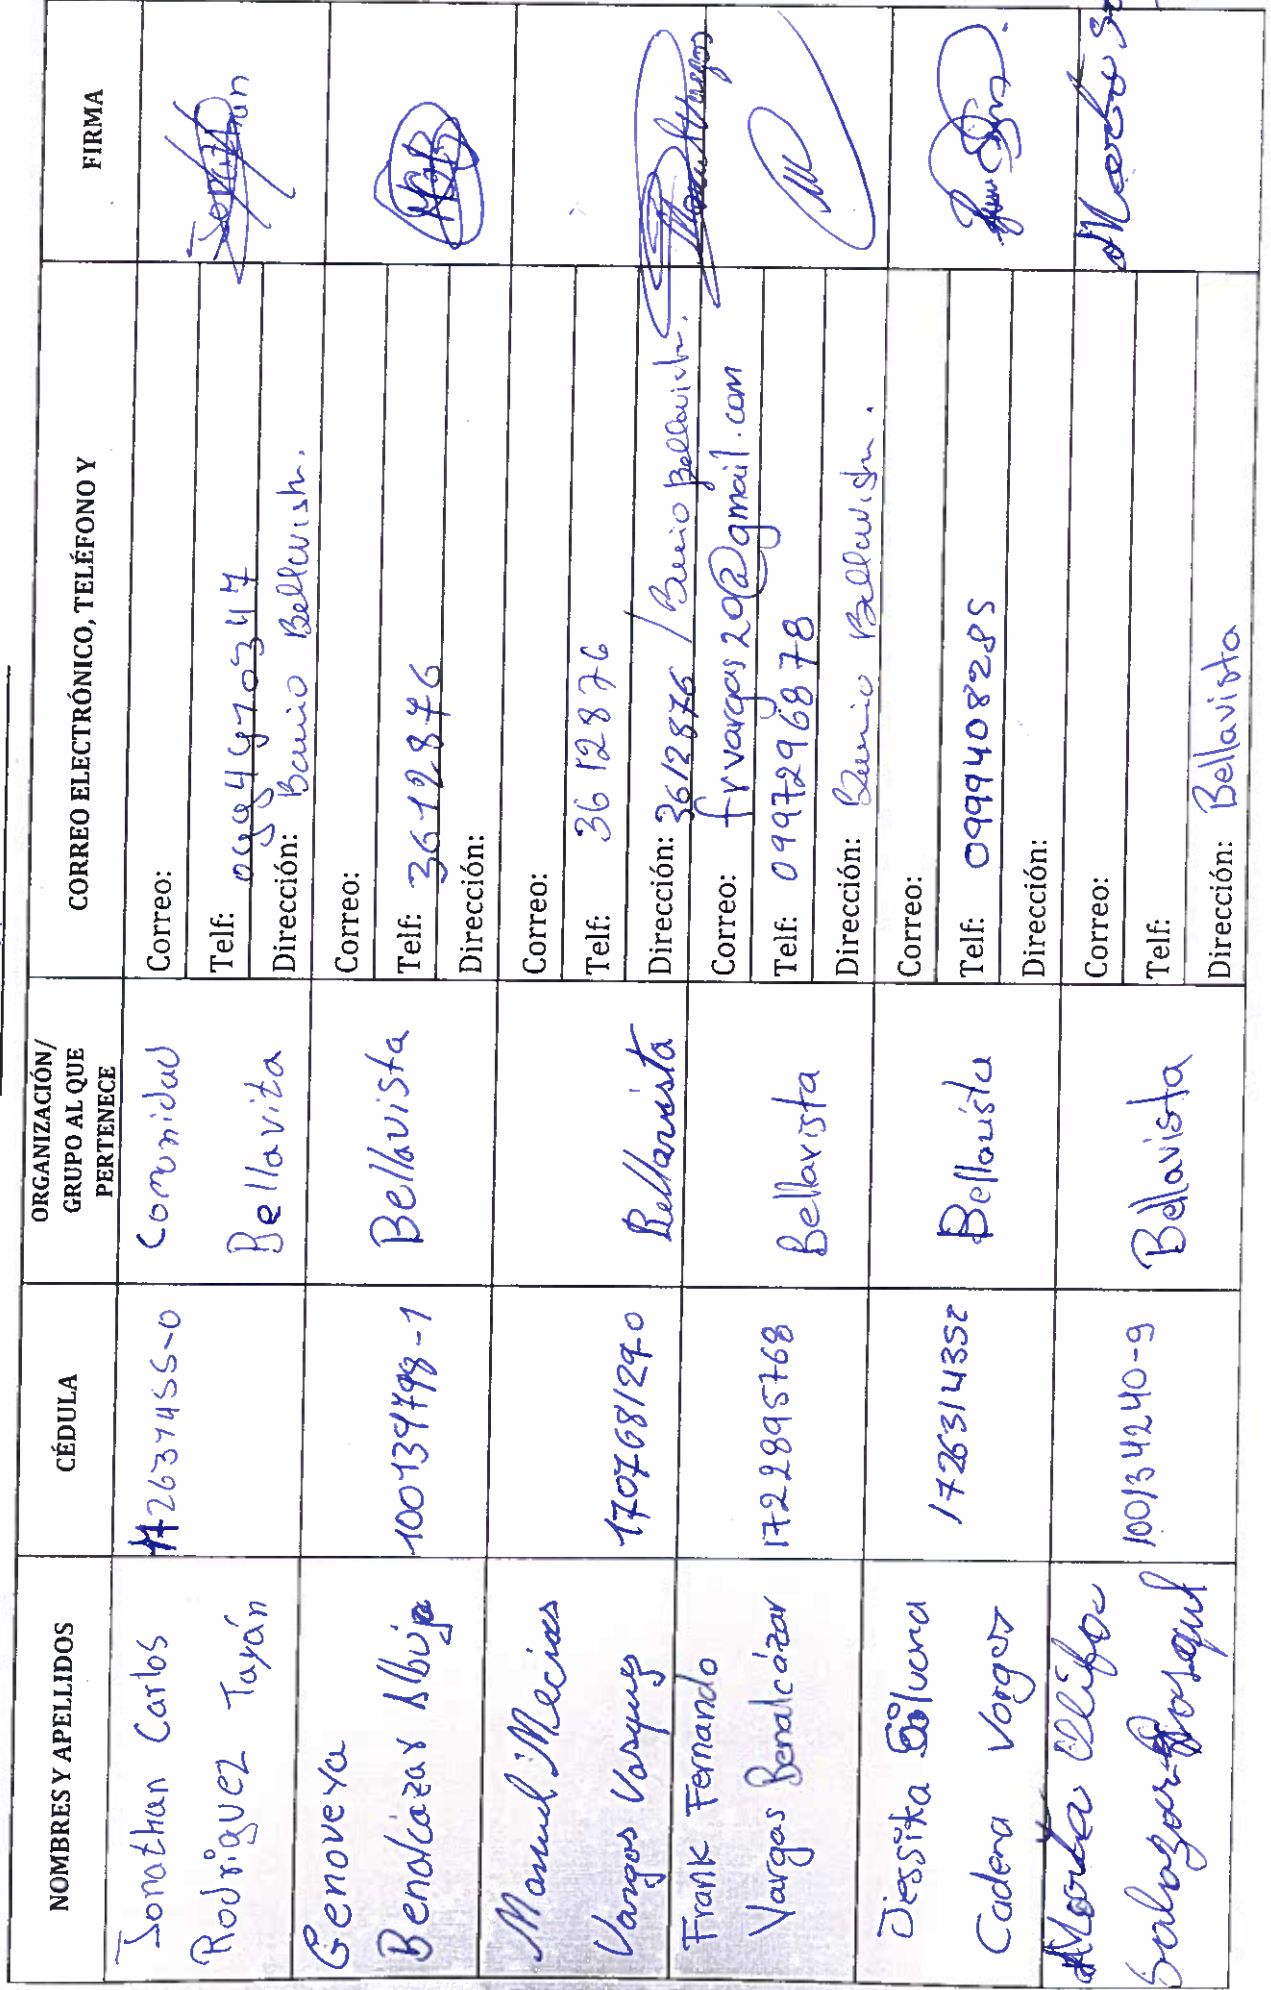 NOMBRES Y APELLIDOS
CÉDULA
ORGANIZACIÓN/
GRUPO AL QUE
PERTENECE
CORREO ELECTRÓNICO, TELÉFONO Y
FIRMA
Jonathan Carlos
Rodriguez Tayán
172637455-0
Comunidad
Bellavita
Correo:
Telf: 0994470347
Dirección: Barrio Bellavista.
Jonathan
Genoveva
Benalcázar Albuja
100139798-1
Bellavista
Correo:
Telf: 3612876
Dirección:
Manuel Mecias
Vargas Vasquez
170768129-0
Bellavista
Correo:
Telf: 3612876
Dirección: 3612876 / Barrio Bellavista.
Frank Fernando
Vargas Benalcázar
1722895768
Bellavista
Correo: frvargas20@gmail.com
Telf: 0997296878
Dirección: Barrio Bellavista.
Jessika Silvana
Cadena Vargas
1726314352
Bellavista
Correo:
Telf: 0999408285
Dirección:
Marta
Salazar
100134240-9
Bellavista
Correo:
Telf:
Dirección: Bellavista